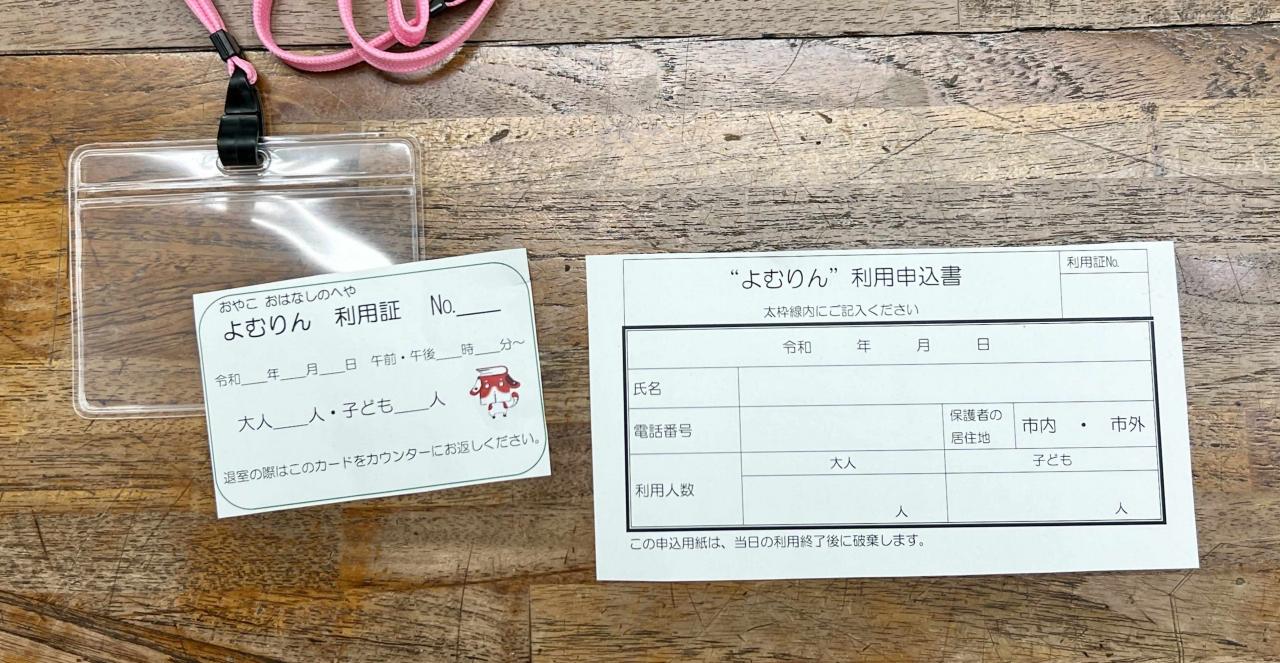 おやこ おはなしのへや
よむりん 利用証 No.____
令和___年___月___日 午前・午後___時___分～
大人____人・子ども____人
退室の際はこのカードをカウンターにお返しください。
“よむりん”利用申込書
利用証No.
太枠線内にご記入ください
令和 年 月 日
氏名
電話番号
保護者の
居住地
市内 ・ 市外
利用人数
大人
子ども
人
人
この申込用紙は、当日の利用終了後に破棄します。